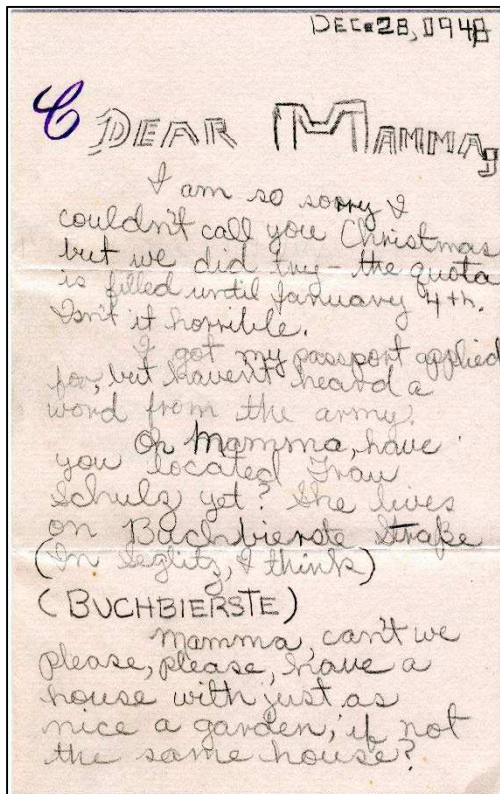 DEC. 28, 1948
C
DEAR MAMMA,
I am so sorry I
couldn't call you Christmas
but we did try - the quota
is filled until January 4th.
Isn't it horrible.
I got my passport applied
for, but haven't heard a
word from the army.
Oh Mamma, have
you located Frau
Schulz yet? She lives
on Buchbierste Straße
(In Seglitz, I think)
(BUCHBIERSTE)
Mamma, can't we
please, please, have a
house with just as
nice a garden, if not
the same house?